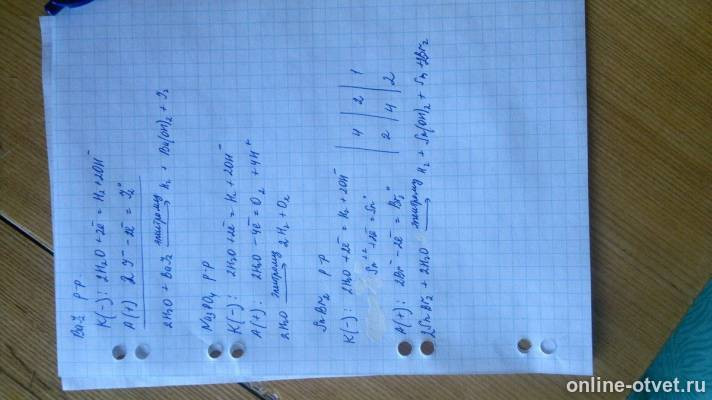 BaI₂ р-р.
K(-): 2H₂O + 2e̅ = H₂ + 2OH⁻
A(+) 2I⁻ - 2e̅ = I₂⁰
2H₂O + BaI₂ электролиз → H₂ + Ba(OH)₂ + I₂
Na₃PO₄ р-р
K(-): 2H₂O + 2e̅ = H₂ + 2OH⁻
A(+): 2H₂O - 4e̅ = O₂ + 4H⁺
2H₂O электролиз → 2H₂ + O₂
SnBr₂ р-р
K(-): 2H₂O + 2e̅ = H₂ + 2OH⁻ | 4 | 2 | 1
Sn⁺² + 2e̅ = Sn⁰
A(+): 2Br⁻ - 2e̅ = Br₂⁰ | 2 | 4 | 2
2SnBr₂ + 2H₂O электролиз → H₂ + Sn(OH)₂ + Sn + 2Br₂
online-otvet.ru